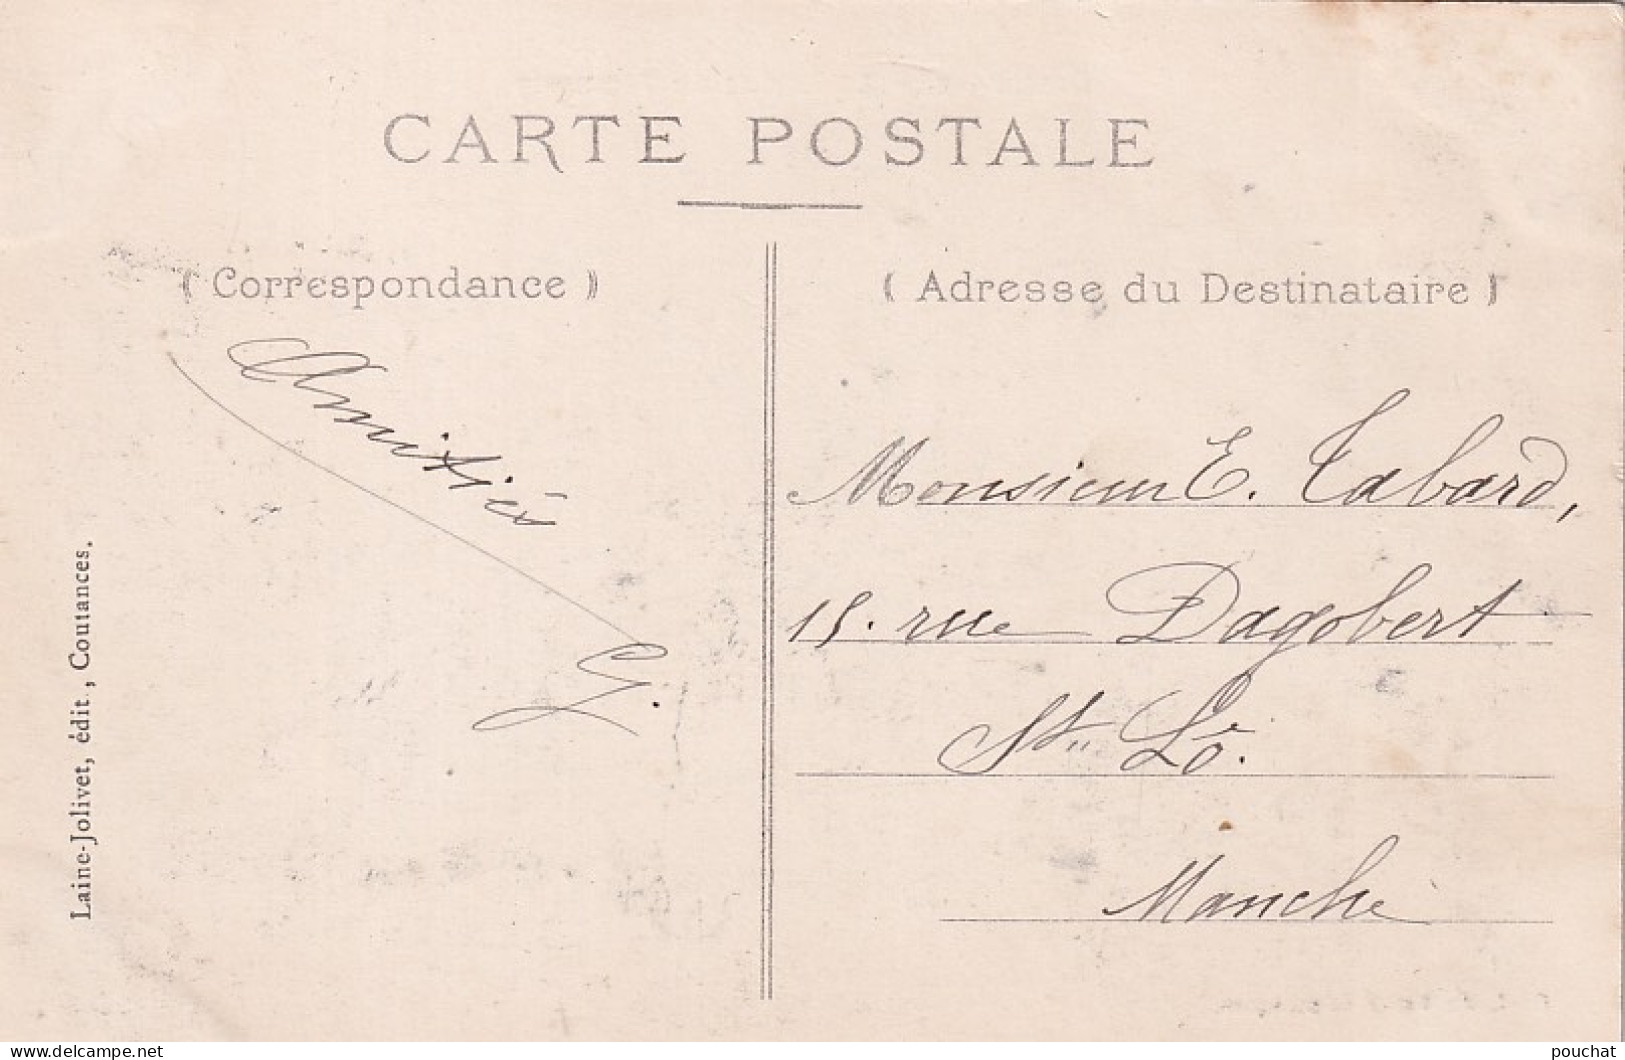 CARTE POSTALE
( Correspondance )
Amitiés
G.
Laine-Jolivet, édit, Coutances.
( Adresse du Destinataire )
Monsieur E. Tabard,
15. rue Dagobert
St. Lô.
Manche
delcampe.net
pouchat